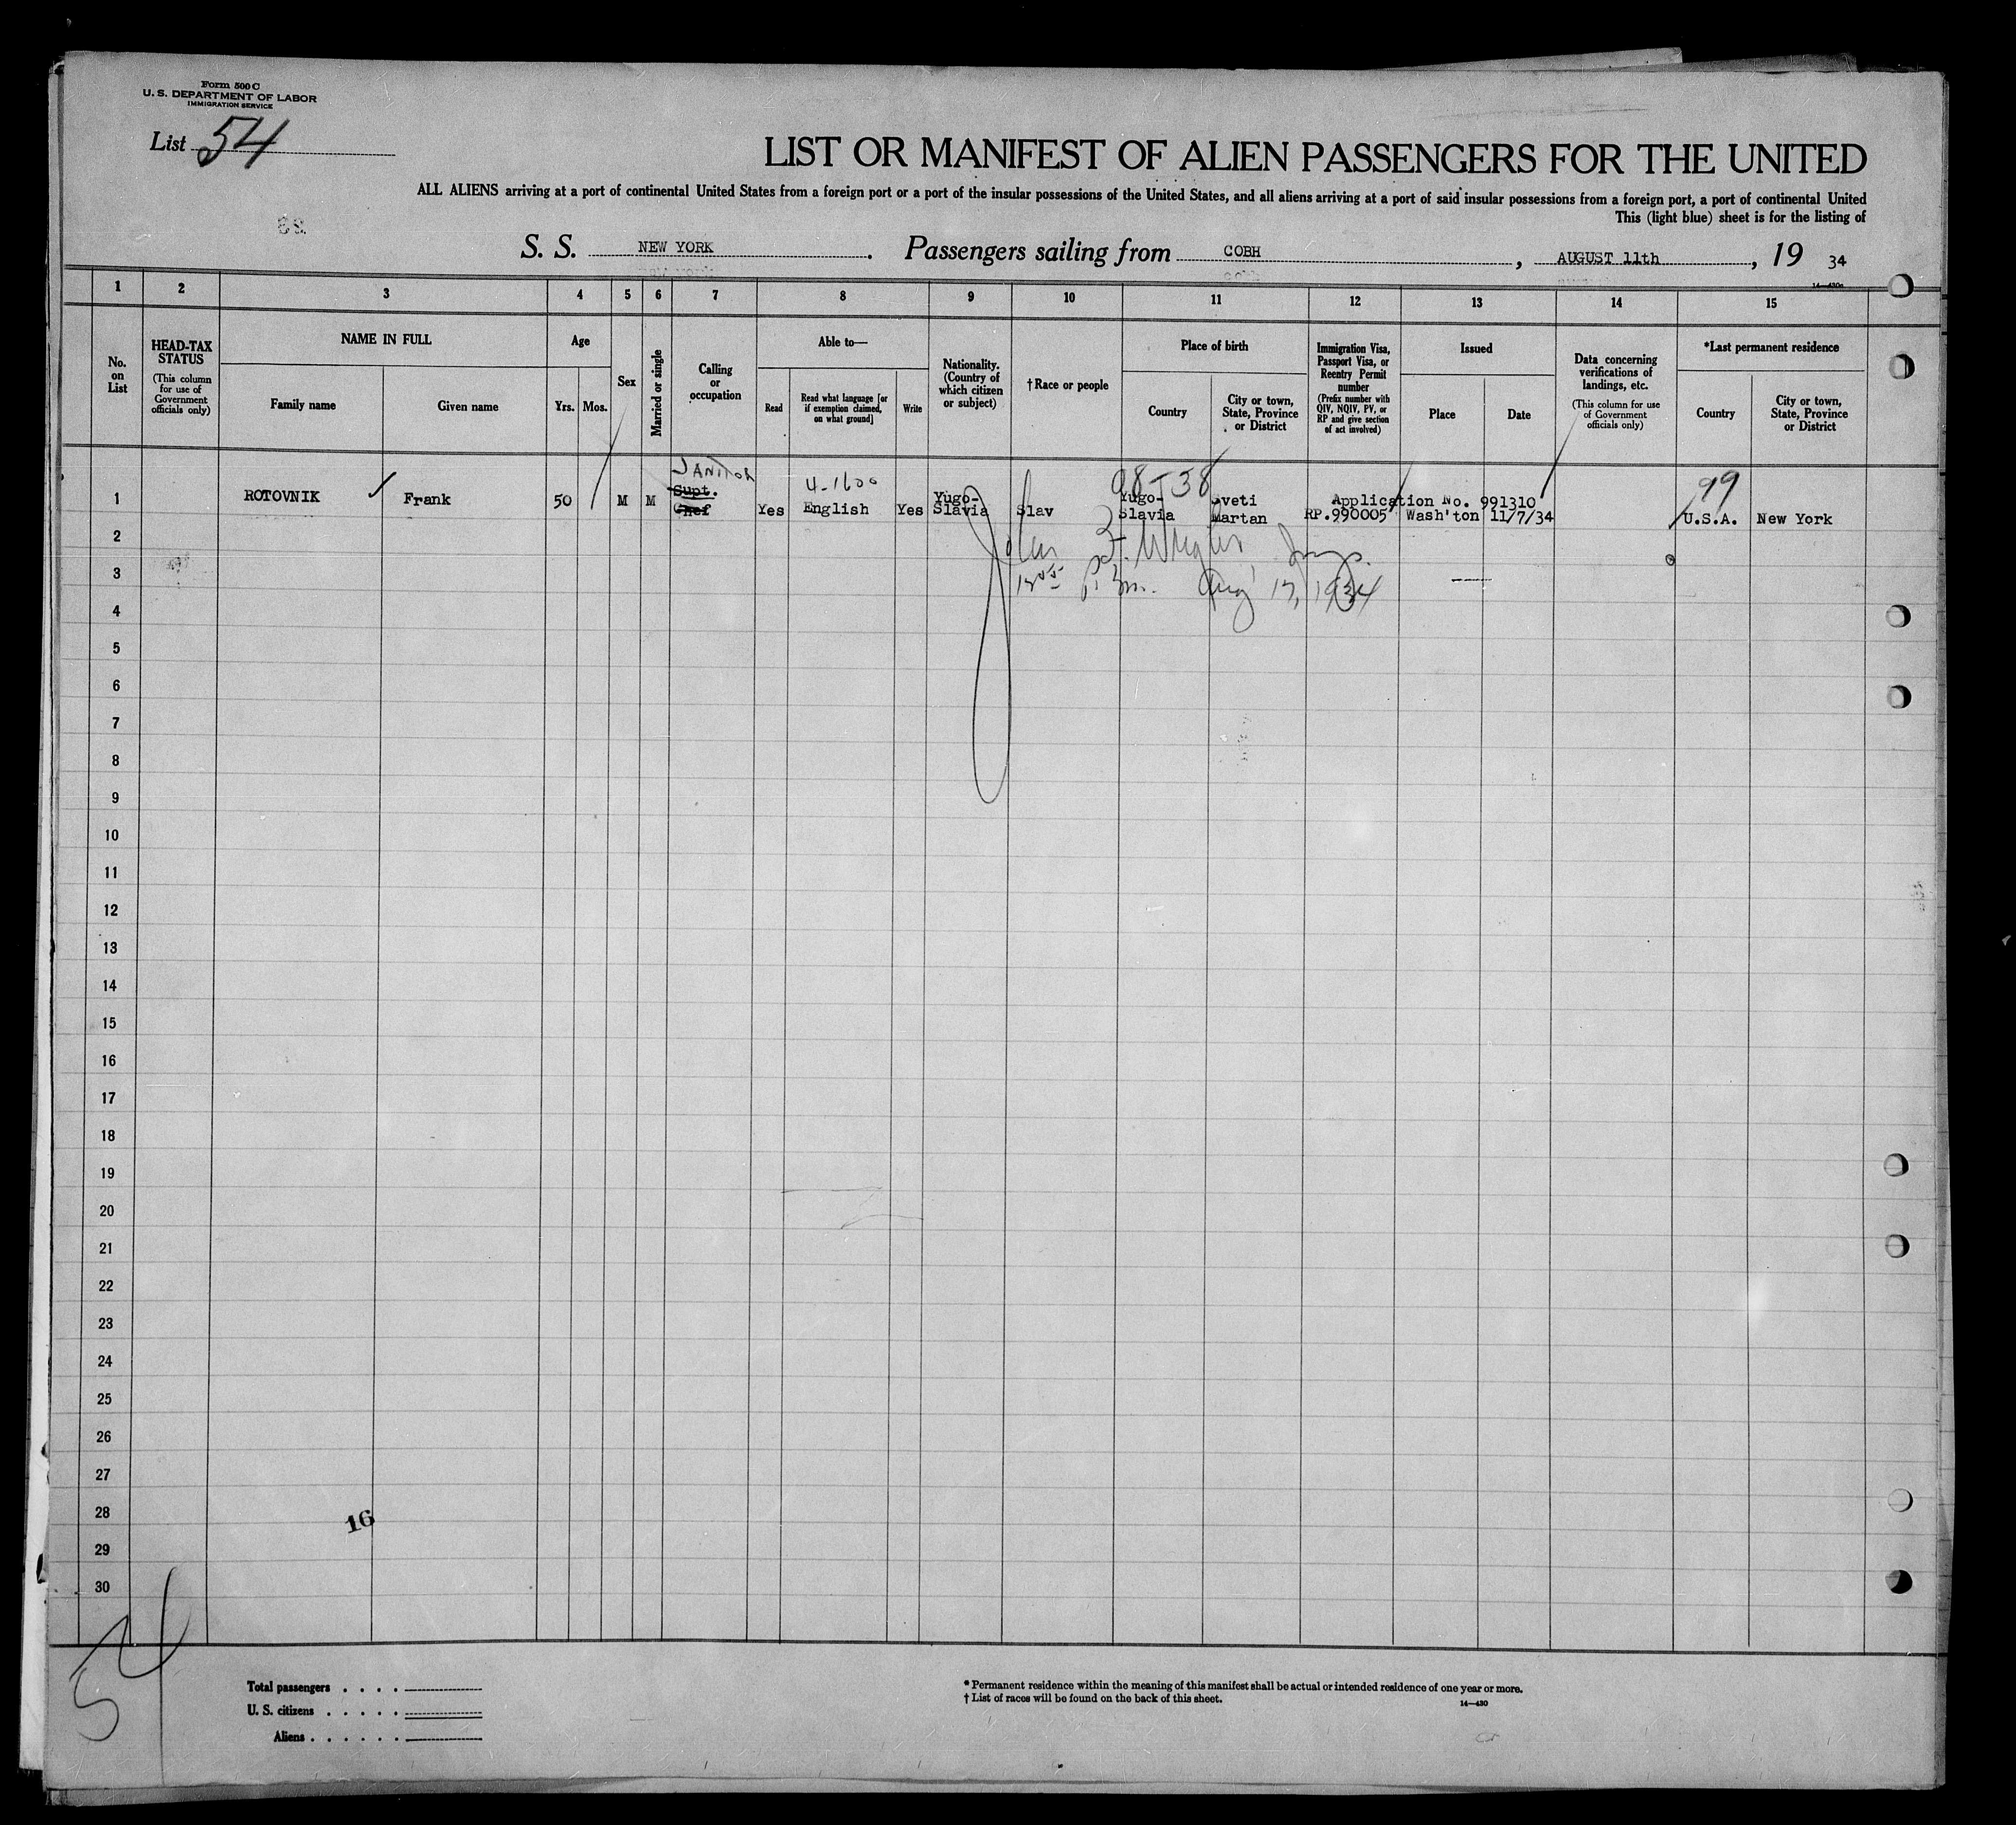 Form 500 C
U. S. DEPARTMENT OF LABOR
IMMIGRATION SERVICE
List 54
LIST OR MANIFEST OF ALIEN PASSENGERS FOR THE UNITED
ALL ALIENS arriving at a port of continental United States from a foreign port or a port of the insular possessions of the United States, and all aliens arriving at a port of said insular possessions from a foreign port, a port of continental United
This (light blue) sheet is for the listing of
S. S. NEW YORK. Passengers sailing from COBH, AUGUST 11th, 19 34
14—430a
1 2 3 4 5 6 7 8 9 10 11 12 13 14 15
No. on List
HEAD-TAX STATUS
(This column for use of Government officials only)
NAME IN FULL
Family name
Given name
Age
Yrs.
Mos.
Sex
Married or single
Calling or occupation
Able to—
Read
Read what language [or if exemption claimed, on what ground]
Write
Nationality. (Country of which citizen or subject)
†Race or people
Place of birth
Country
City or town, State, Province or District
Immigration Visa, Passport Visa, or Reentry Permit number
(Prefix number with QIV, NQIV, PV, or RP and give section of act involved)
Issued
Place
Date
Data concerning verifications of landings, etc.
(This column for use of Government officials only)
*Last permanent residence
Country
City or town, State, Province or District
JANITOR
4-1600
98-38
99
1 ROTOVNIK Frank 50 M M Supt. Chef Yes English Yes Yugo-Slavia Slav Yugo-Slavia Sveti Martan Application No. 991310 RP.990005 Wash'ton 11/7/34 U.S.A. New York
2
3
Aug 17, 1934
4
5
6
7
8
9
10
11
12
13
14
15
16
17
18
19
20
21
22
23
24
25
26
27
28
16
29
30
54
Total passengers . . . .
U. S. citizens . . . . .
Aliens . . . . . .
* Permanent residence within the meaning of this manifest shall be actual or intended residence of one year or more.
† List of races will be found on the back of this sheet.
14—430